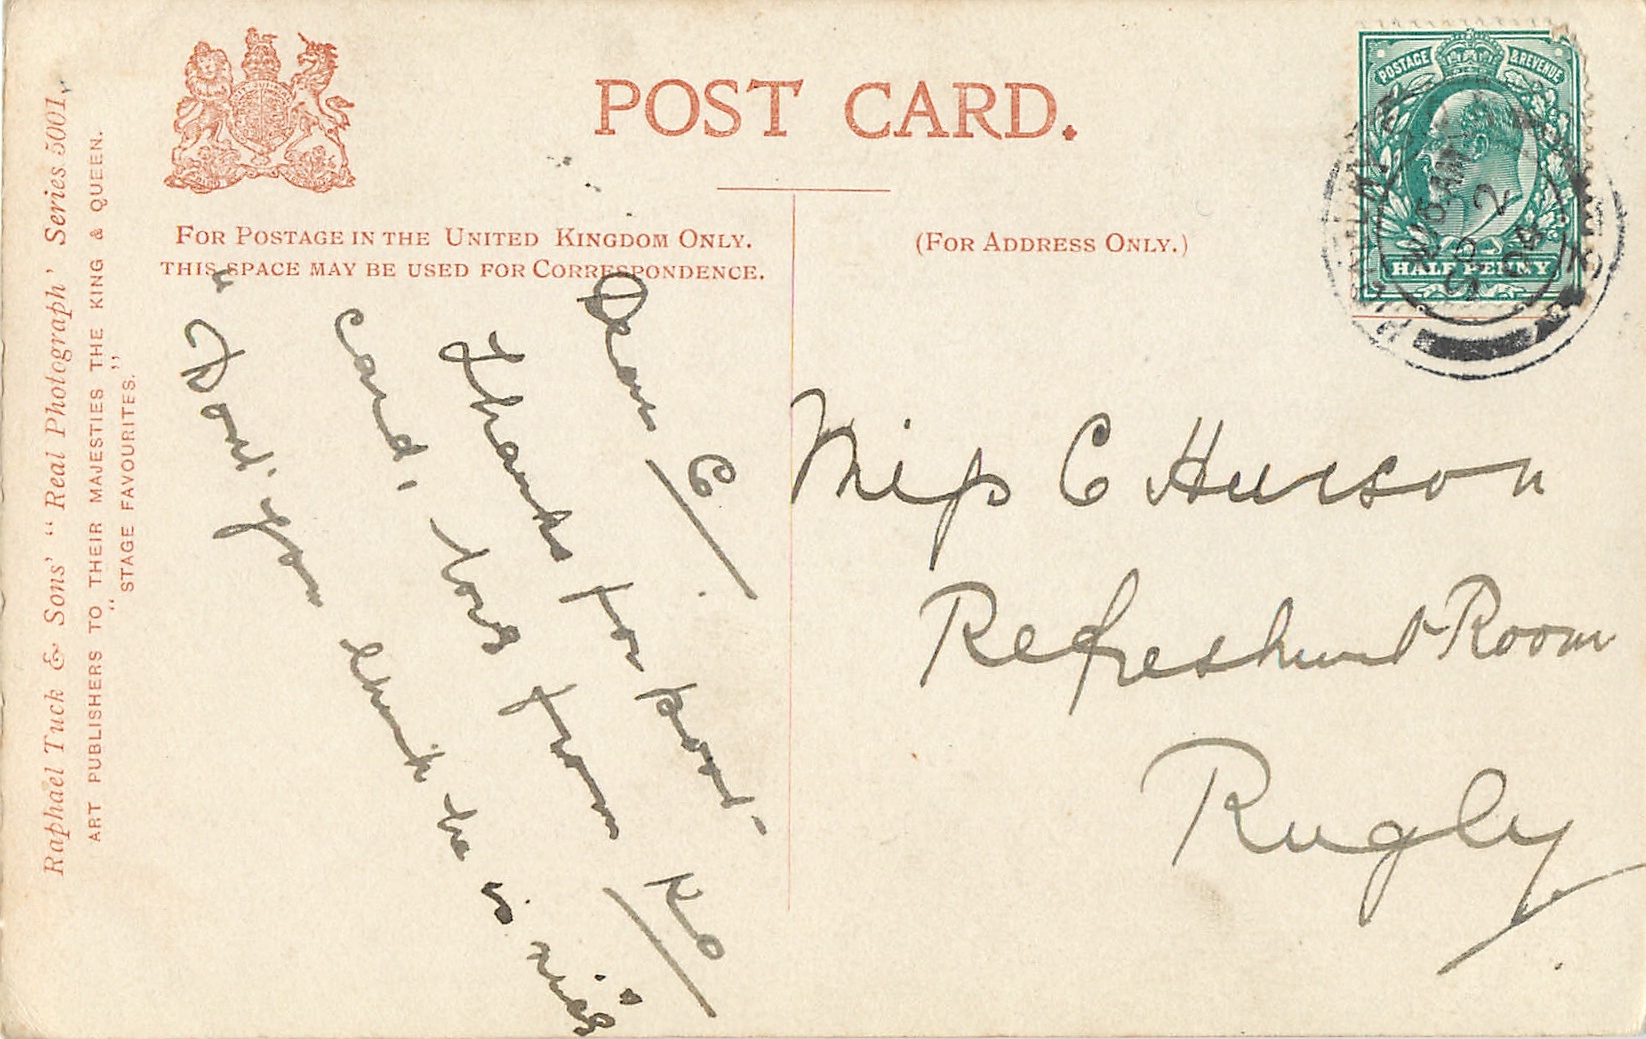 POST CARD.
FOR POSTAGE IN THE UNITED KINGDOM ONLY.
THIS SPACE MAY BE USED FOR CORRESPONDENCE.
(FOR ADDRESS ONLY.)
Raphael Tuck & Sons' "Real Photograph' Series 5001.
ART PUBLISHERS TO THEIR MAJESTIES THE KING & QUEEN.
"STAGE FAVOURITES."
POSTAGE & REVENUE
HALF PENNY
Dear C
Thanks for
card, love from
"Don't you think he is nice
Miss C Hewson
Refreshment Room
Rugby